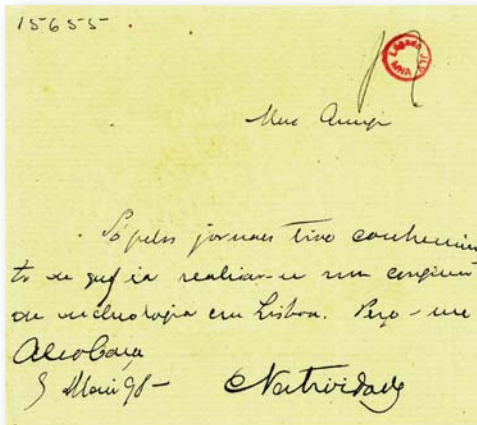 15655.
Legado JLV
MNA
Meu Amigo
Só pelos jornaes tive conhecimen
to de que ia realisar-se um congresso
de archeologia em Lisboa. Peço-me
Alcobaça
9 Maio 98 - Natividade